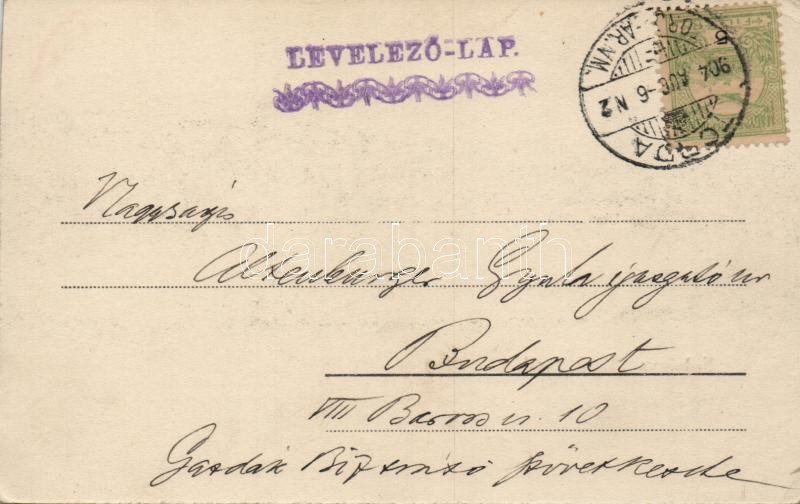 LEVELEZŐ-LAP.
904 AUG-6 N2
Nagyságos
Altenburger Gyula igazgató úr
Budapest
VIII Baross u. 10
Gazdák Biztosító Szövetkezete
darabanth